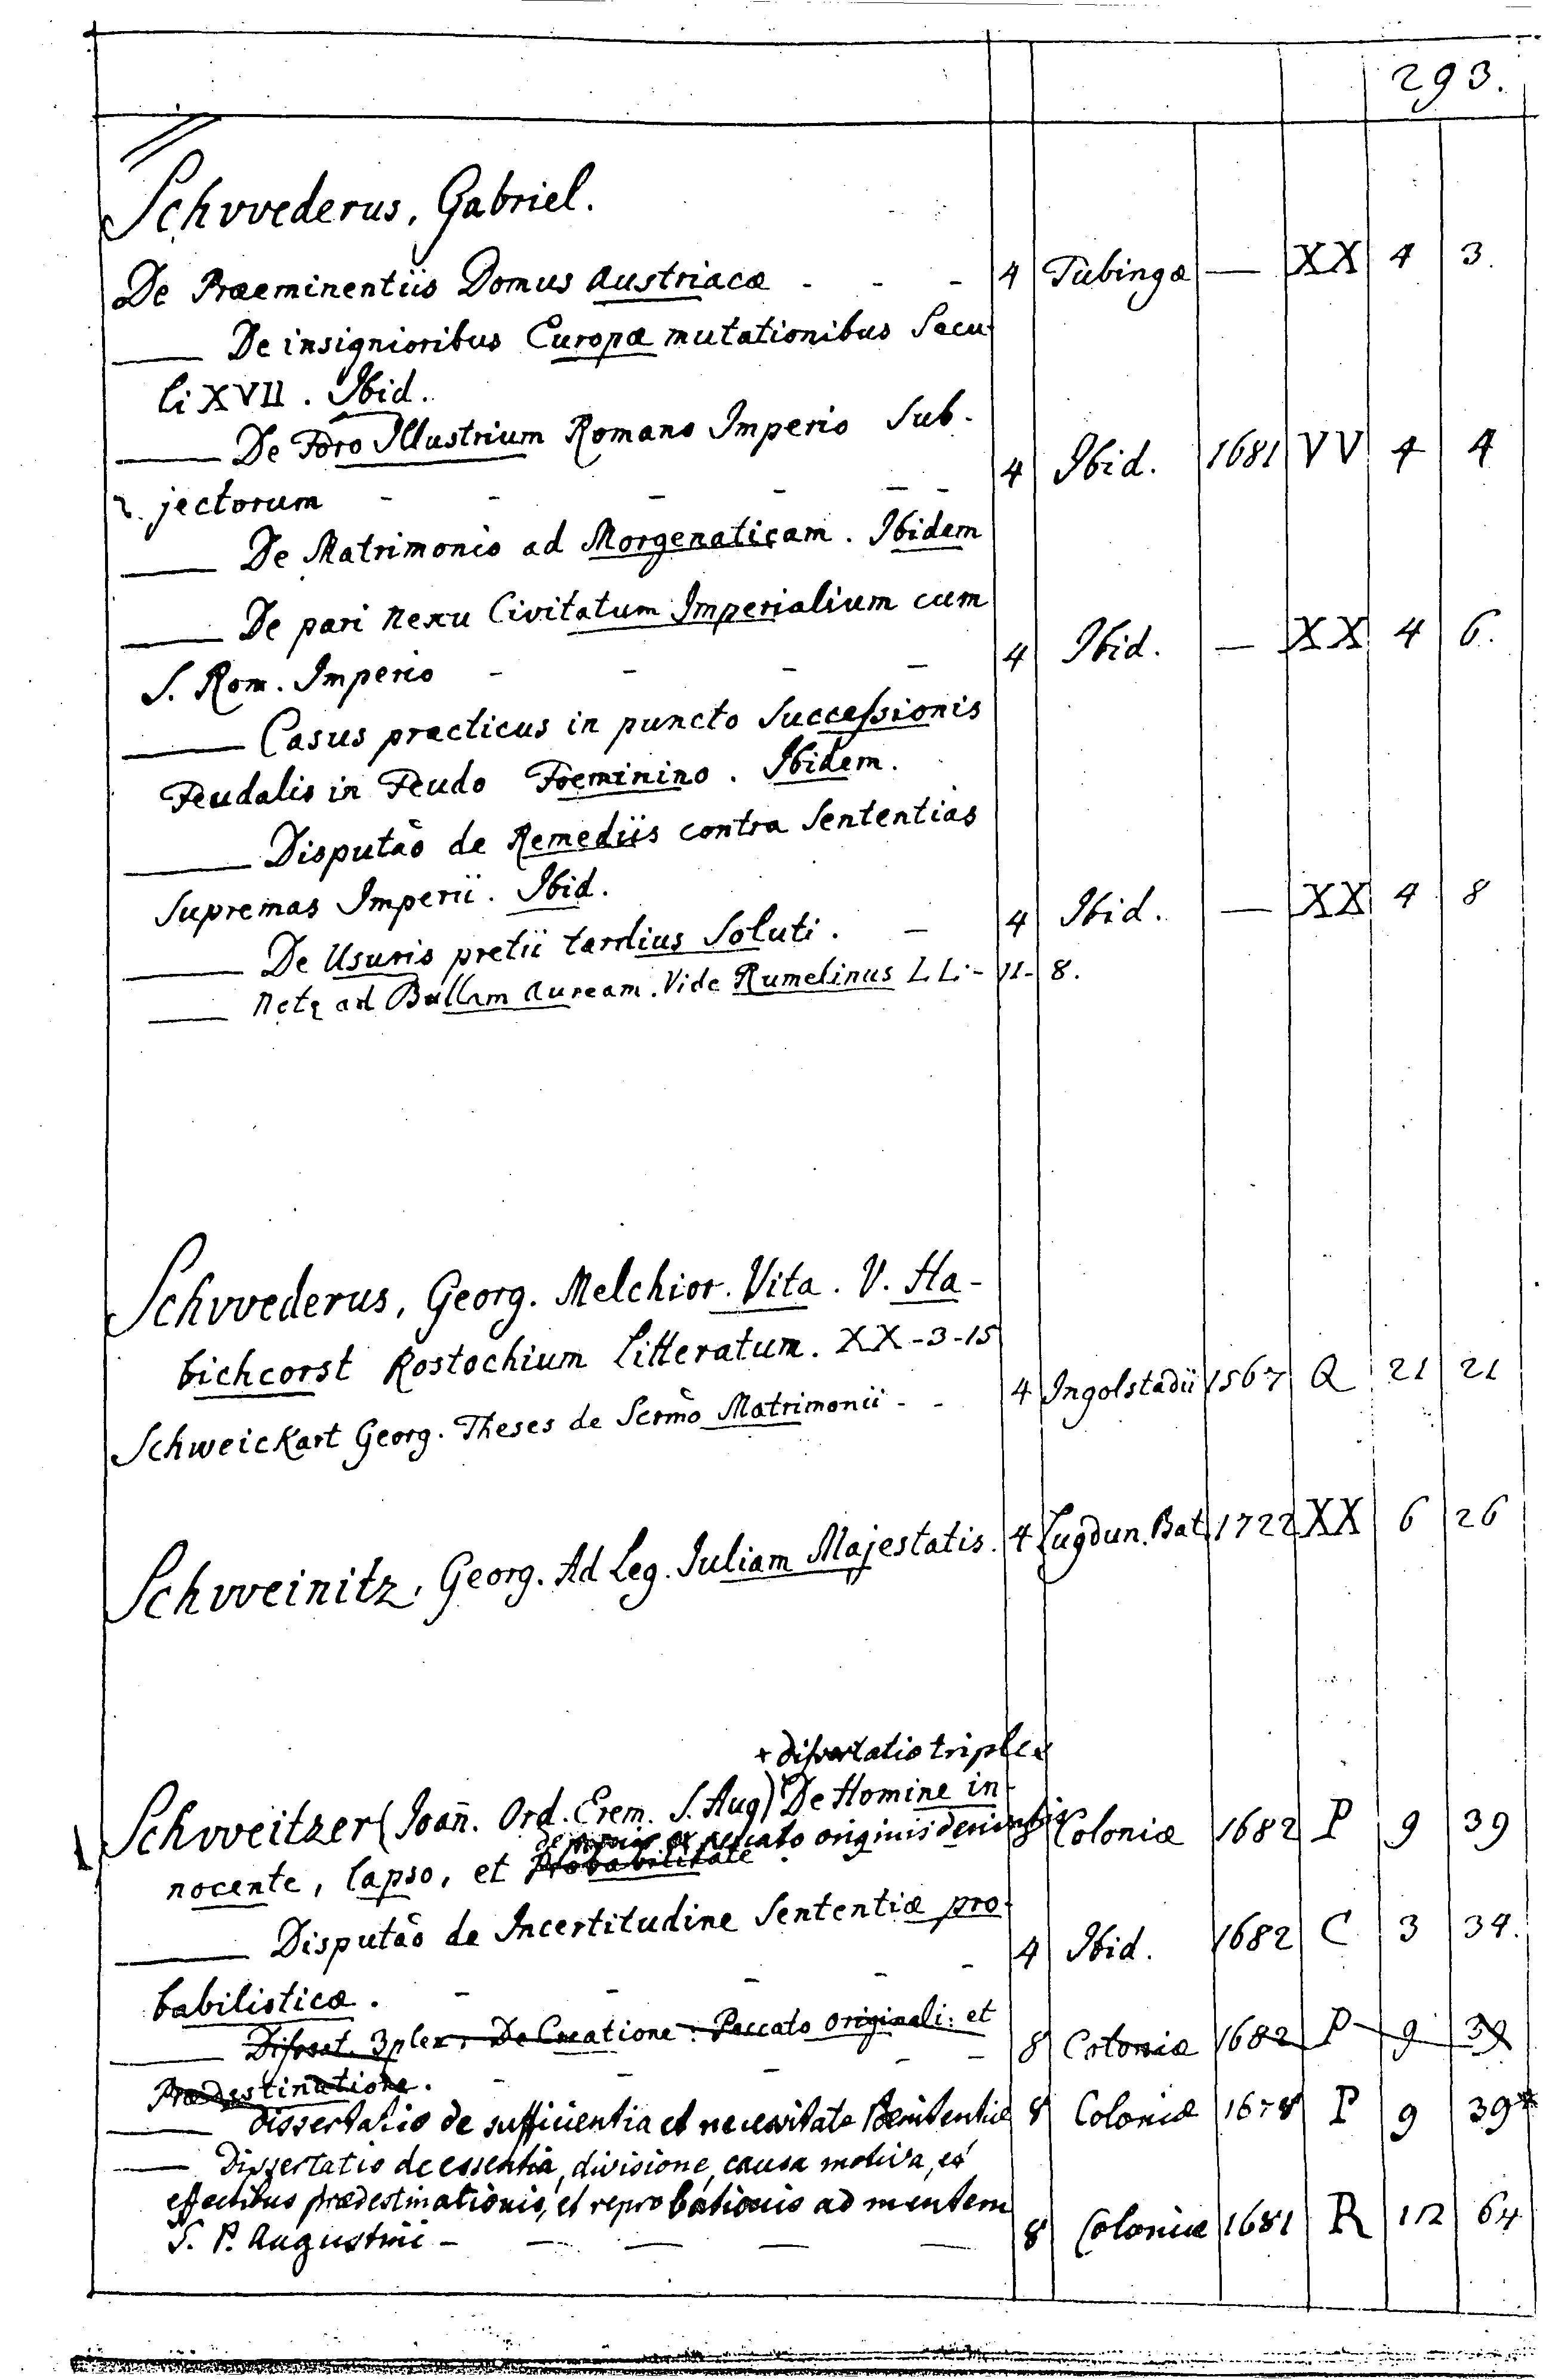 293.
Schvvederus, Gabriel.
De Præeminentiis Domus Austriacæ - - - 4 Tübingæ — XX 4 3.
— De insignioribus Europæ mutationibus Sæcu-
li XVII. Ibid.
— De Foro Illustrium Romano Imperio Sub-
jectorum - - - - - - 4 Ibid. 1681 VV 4 4
— De Matrimonio ad Morgenaticam. Ibidem
— De pari nexu Civitatum Imperialium cum
S. Rom. Imperio - - - - 4 Ibid. — XX 4 6.
— Casus practicus in puncto Successionis
Feudalis in Feudo Foeminino. Ibidem.
— Disputão de Remediis contra Sententias
Supremas Imperii. Ibid.
— De Usuris pretii tardius Soluti. - 4 Ibid. — XX 4 8
— Notę ad Bullam Auream. Vide Rumelinus LL - 11 - 8.
Schvvederus, Georg. Melchior. Vita. V. Ha-
bichcorst Rostochium Litteratum. XX-3-15
Schweickart Georg. Theses de Scrmo Matrimonii - - 4 Ingolstadii 1567 Q 21 21
Schvveinitz, Georg. Ad Leg. Juliam Majestatis. 4 Lugdun. Bat. 1722 XX 6 26
+ dissertatio triplex
Schvveitzer (Joañ. Ord. Erem. S. Aug) De Homine in-
de ex peccato originis 8 Coloniæ 1682 P 9 39
nocente, lapso, et Probabilitate
— Disputão de Incertitudine Sententiæ pro-
babilisticæ. - - - - - 4 Ibid. 1682 C 3 34.
— Dissert. 3plex: De Creatione: Peccato originali: et
Prædestinatione. - - - - - 8 Coloniæ 1682 P 9 39
— dissertatio de sufficientia et necessitate Pœnitentiæ 8 Coloniæ 1678 P 9 39*
— Dissertatio de essentia, divisione, causa motiva, et
effectibus prædestinationis, et reprobationis ad mentem
S. P. Augustini - - - - - 8 Coloniæ 1681 R 12 64